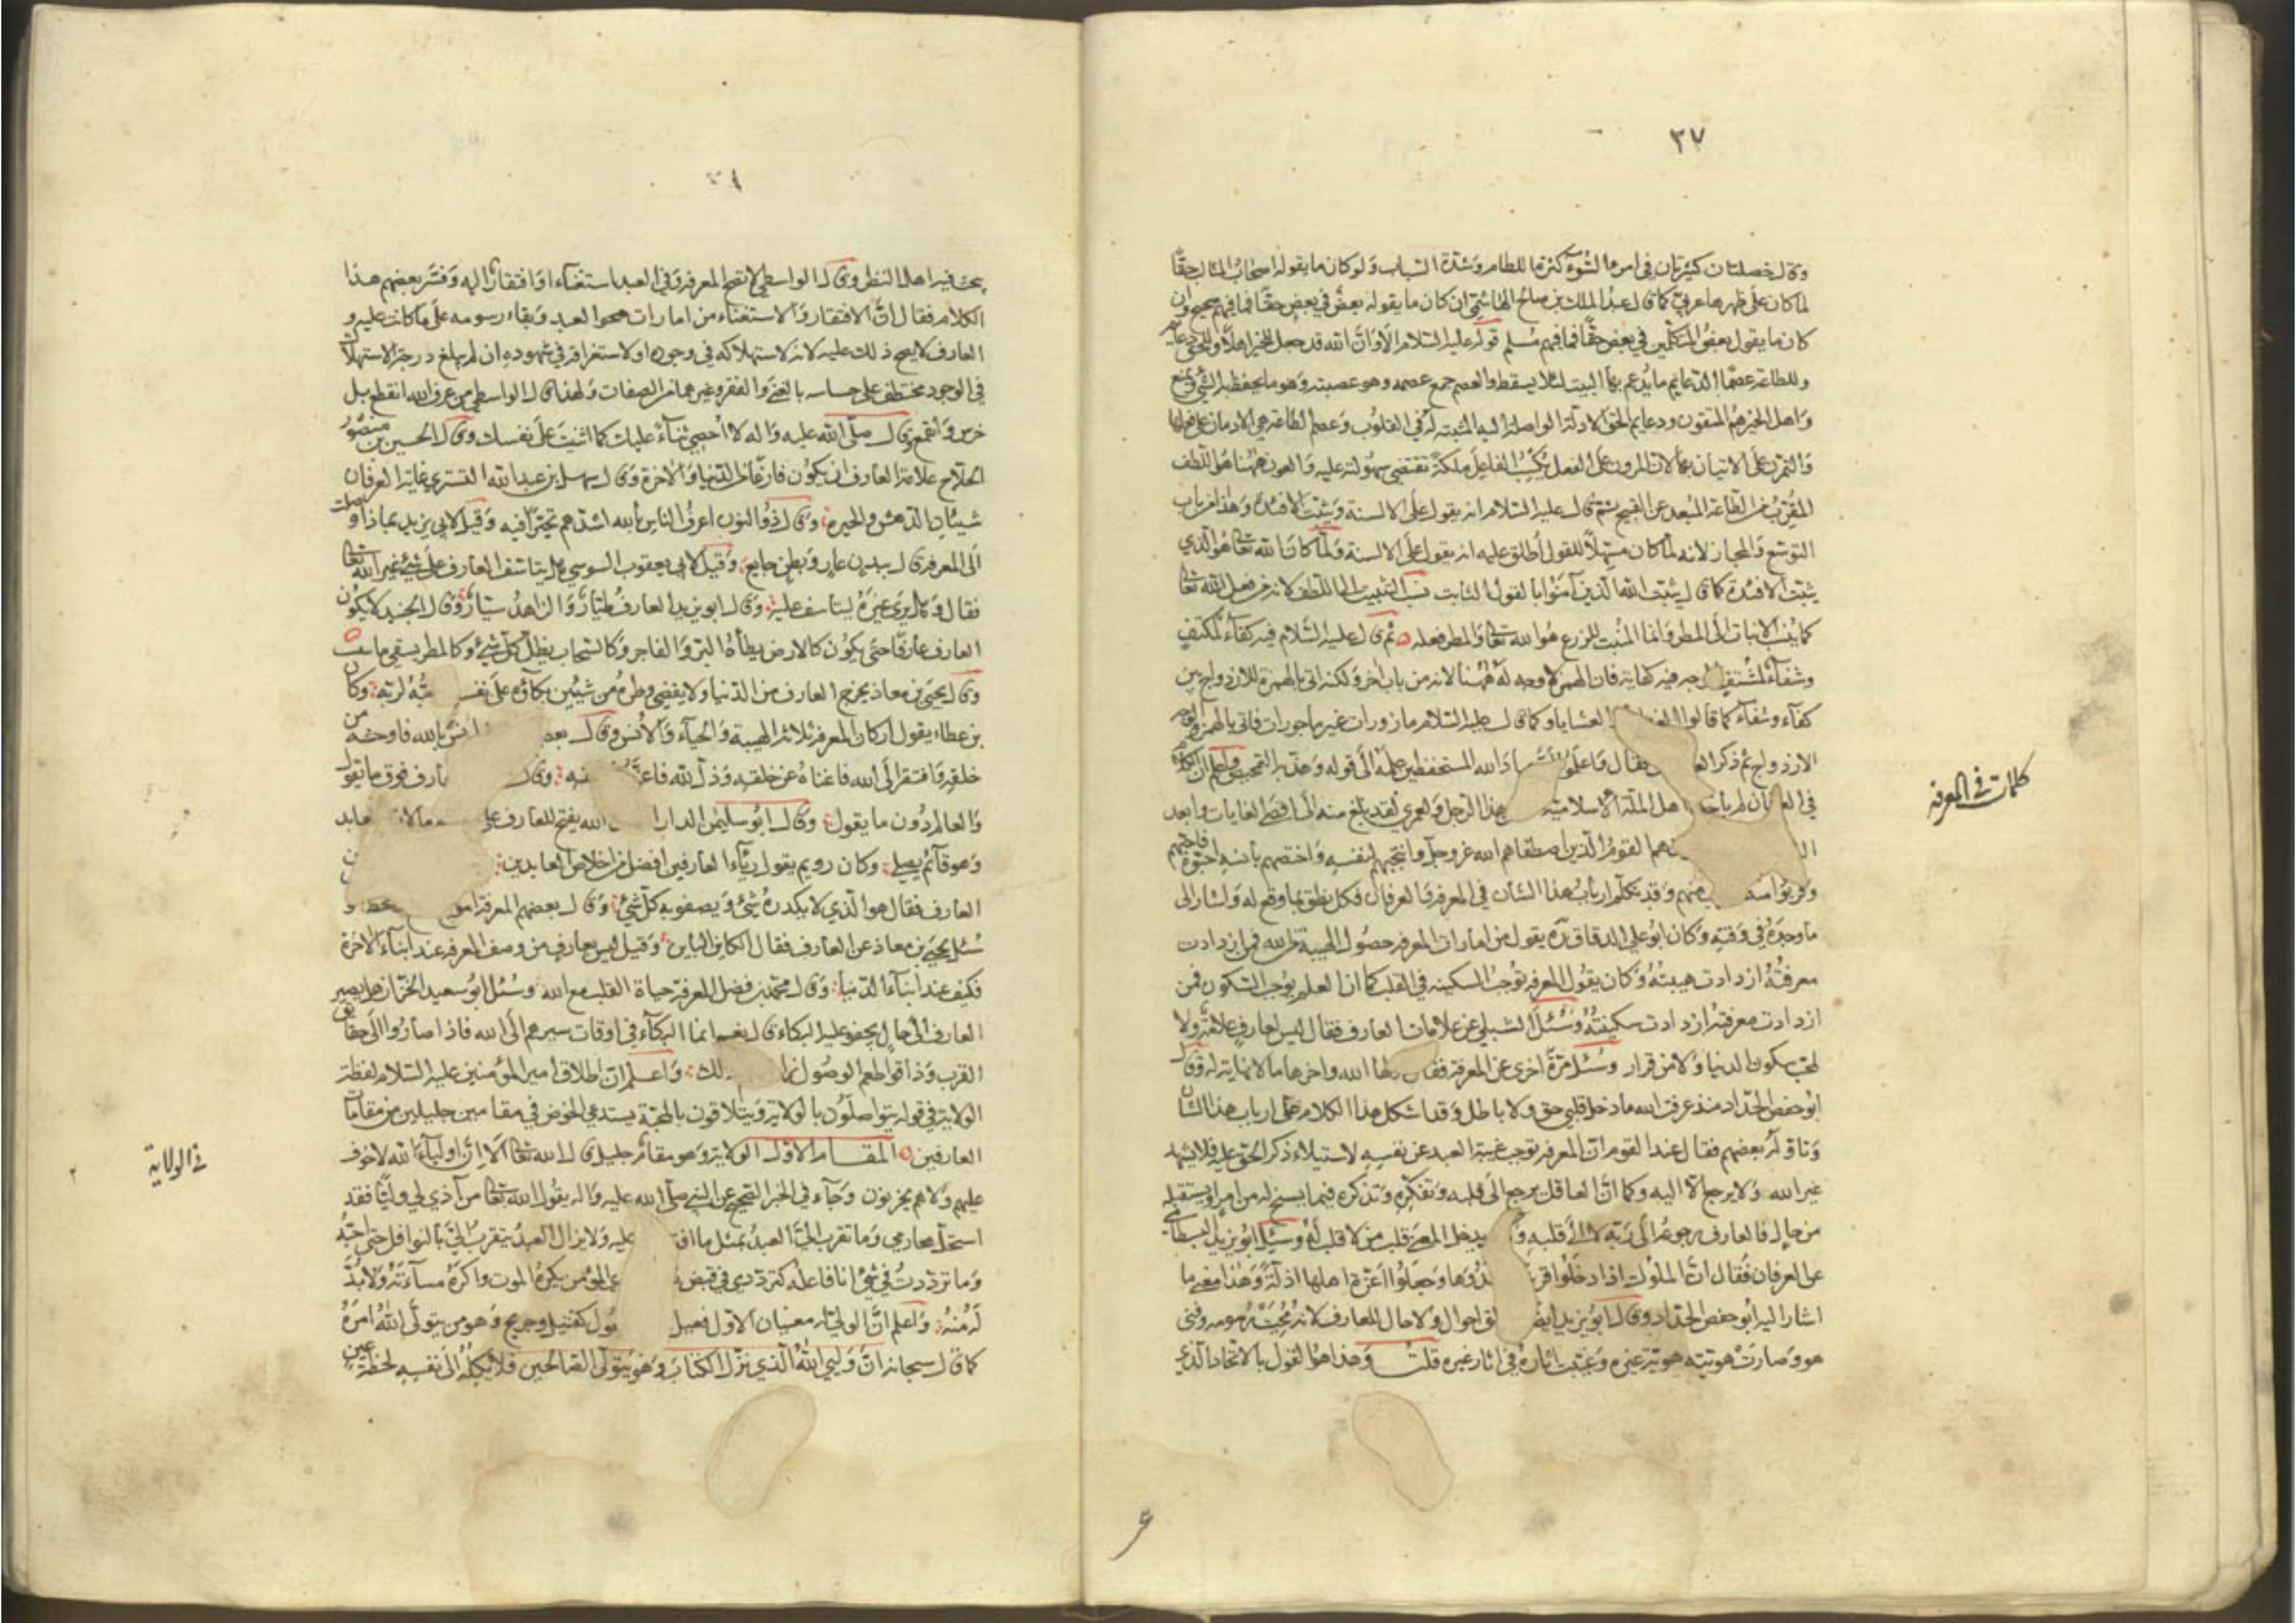 ٣٧
وقال خصلتان كثيرتان في امرء السوء كثرة اللطام وشدة السباب ولو كان ما يقوله اصحاب المثالب حقا
لما كان على ظهرها عربي كما قال عبد الملك بن صالح الهاشمي ان كان ما يقوله بعض في بعض حقا فما فيهم صحيح وان
كان ما يقول بعض المتكلمين في بعض حقا فما فيهم مسلم قوله عليه السلام الا وان الله قد جعل للخير اهلا وللحق دعايم
وللطاعة عصما الدعايم ما يدعم بها البيت لئلا يسقط والعصم جمع عصمة وهو ما يحفظ به الشي ويمنع
واهل الخير هم المتقون ودعايم الحق الادلة الواصلة اليه المثبتة له في القلوب وعصم الطاعة هي الادمان على فعلها
والتمرن على الاتيان بها لان المرون على الفعل يكسب الفاعل ملكة تقتضي سهولته عليه والعون ههنا هو اللطف
المقرب من الطاعة المبعد عن القبيح ثم قال عليه السلام انه يقول على الالسنة ويثبت الافئدة وهذا من باب
التوسع والمجاز لانه لما كان مسهلا للقول اطلق عليه انه يقول على الالسنة ولما كان الله تعالى هو الذي
يثبت الافئدة كما قال يثبت الله الذين آمنوا بالقول الثابت نسب التثبيت الى اللطف لانه من فعل الله تعالى
كما ينسب الانبات الى المطر وانما المنبت للزرع هو الله تعالى والمطر فعله ثم قال عليه السلام فيه كفاء لمكتف
وشفاء لمشتف جه فيه كفاية فان الهمز لا وجه له ههنا لانه من باب اخر ولكنه اتى بالهمزة للازدواج بين
كفاء وشفاء كما قالوا الغدايا والعشايا وكما قال عليه السلام مازورات غير ماجورات فاتى بالهمز والوجه
الازدواج ثم ذكر العا فقال واعلموا ان عباد الله المستحفظين علمه الى قوله وهذبه التمحيص واعلم ان الكلام
في العرفان لم ياخذ اهل الملة الاسلامية هذا الرجل ولعمري لقد بلغ منه الى اقصى الغايات وابعد
هم القوم الذين اصطفاهم الله عز وجل وانتجبهم لنفسه واختصهم بانسه احبوه فاحبهم
وقربوا منه منهم وقد تكلم ارباب هذا الشان في المعرفة والعرفان فكل نطق بما وقع له واشار الى
ما وجده في وقته وكان ابو علي الدقاق ره يقول من امارات المعرفة حصول الهيبة من الله فمن ازدادت
معرفته ازدادت هيبته وكان يقول المعرفة توجب السكينة في القلب كما ان العلم يوجب السكون فمن
ازدادت معرفته ازدادت سكينته وسئل الشبلي عن علامات العارف فقال ليس لعارف علامة ولا
لمحب سكون ولا من قرار وسئل مرة اخرى عن المعرفة فقال اولها الله واخرها ما لا نهاية له وقال
ابو حفص الحداد منذ عرفت الله ما دخل قلبي حق ولا باطل وقد اشكل هذا الكلام على ارباب هذا الشان
وتاوله بعضهم فقال عند القوم ان المعرفة توجب غيبة العبد عن نفسه لاستيلاء ذكر الحق عليه فلا يشهد
غير الله ولا يرجع الا اليه وكما ان العاقل يرجع الى قلبه وتفكره وتذكره فيما يسنح له من امر او يستقبله
من حال فالعارف رجوعه الى ربه لا الى قلبه و يدخل المعنى قلب من لا قلب له وسئل ابو يزيد البسطامي
عن العرفان فقال ان الملوك اذا دخلوا قرية افسدوها وجعلوا اعزة اهلها اذلة وهذا معنى ما
اشار اليه ابو حفص الحداد وقال ابو يزيد ايضا للخلق احوال ولا حال للعارف لانه محيت رسومه وفني
هو وصارت هويته هوية غيره وغيبت اثاره في اثار غيره قلت وهذا هو القول بالاتحاد الذي
كلمات في المعرفة
يبحث فيه اهل النظر وقال الواسطي لا تصح المعرفة وفي العبد استغناء او افتقار اليه وفسر بعضهم هذا
الكلام فقال ان الافتقار والاستغناء من امارات صحو العبد وبقاء رسومه على ما كانت عليه و
العارف لا يصح ذلك عليه لانه لاستهلاكه في وجوده او لاستغراقه في شهوده ان لم يبلغ درجة الاستهلاك
في الوجود مختطف على حساسه بالغنى والفقر وغيرهما من الصفات ولهذا قال الواسطي من عرف الله انقطع بل
خرس وانقمع وقال صلى الله عليه واله لا احصي ثناء عليك كما اثنيت على نفسك وقال الحسين بن منصور
الحلاج علامة العارف ان يكون فارغا من الدنيا والاخرة وقال سهل بن عبد الله التستري غاية العرفان
شيئان الدهش والحيرة وقال ذو النون اعرف الناس بالله اشدهم تحيرا فيه وقيل لابي يزيد بماذا وصلت
الى المعرفة قال ببدن عار وبطن جايع وقيل لابي يعقوب السوسي هل يتاسف العارف على شئ غير الله تعالى
فقال وهل يرى غيره ليتاسف عليه وقال ابو يزيد العارف طيار والزاهد سيار وقال الجنيد لا يكون
العارف عارفا حتى يكون كالارض يطأه البر والفاجر وكالسحاب يظل كل شئ وكالمطر يسقي ما ينبت
وقال يحيى بن معاذ يخرج العارف من الدنيا ولا يقضي وطره من شيئين بكاؤه على نفسه وحبه لربه وكان
بن عطاء يقول اركان المعرفة ثلاثة الهيبة والحياء والانس وقال بعضهم انس بالله فاوحشه من
خلقه وافتقر الى الله فاغناه عن خلقه وذل لله فاعزه وقال العارف فوق ما يقول
والعالم دون ما يقول وقال ابو سليمن الداراني الله يفتح للعارف على ما لا عابد
وهو قائم يصلي وكان رويم يقول رياء العارفين افضل من اخلاص العابدين
العارف فقال هو الذي لا يكدره شئ ويصفو به كل شئ وقال بعضهم المعرفة
سئل يحيى بن معاذ عن العارف فقال الكاين الباين وقيل ليس بعارف من وصف المعرفة عند ابناء الاخرة
فكيف عند ابناء الدنيا وقال محمد بن فضل المعرفة حياة القلب مع الله وسئل ابو سعيد الخراز هل يصير
العارف الى حال يجفو عليه البكاء قال نعم انما البكاء في اوقات سيرهم الى الله فاذا صاروا الى حقايق
القرب وذاقوا طعم الوصول زال ذلك واعلم ان اطلاق امير المؤمنين عليه السلام لفظة
الولاية في قوله يتواصلون بالولاية ويتلاقون بالمحبة يستدعي الخوض في مقامين جليلين من مقامات
العارفين المقام الاول الولاية وهو مقام جليل قال الله تعالى الا ان اولياء الله لا خوف
عليهم ولا هم يحزنون وجاء في الخبر الصحيح عن النبي صلى الله عليه واله يقول الله تعالى من آذى لي وليا فقد
استحل محارمي وما تقرب الي العبد بمثل ما افترضت عليه ولا يزال العبد يتقرب الي بالنوافل حتى احبه
وما ترددت في شئ انا فاعله كترددي في قبض نفس عبدي المؤمن يكره الموت واكره مساءته ولا بد
له منه واعلم ان الولي له معنيان الاول فعيل بمعنى مفعول كقتيل وجريح وهو من يتولى الله امره
كما قال سبحانه ان وليي الله الذي نزل الكتاب وهو يتولى الصالحين فلا يكله الى نفسه لحظة عين
في الولاية